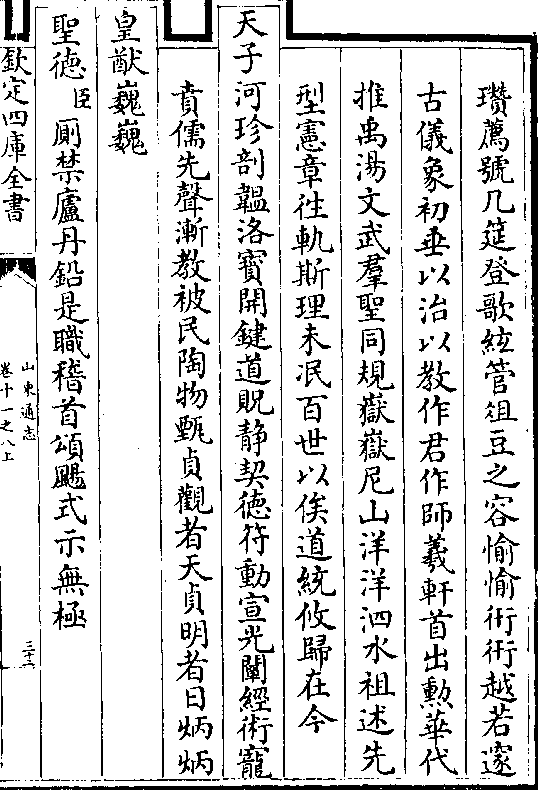 瓚薦號几筵登歌絃管俎豆之容愉愉術術越若邃
古儀象初垂以治以教作君作師羲軒首出勲華代
推禹湯文武羣聖同規嶽嶽尼山洋洋泗水祖述先
型憲章往軌斯理未泯百世以俟道統攸歸在今
天子河珍剖韞洛寶開鍵道貺静契徳符動宣光闡經術寵
賁儒先聲漸教被民陶物甄貞觀者天貞明者日炳炳
皇猷巍巍
聖徳臣厠禁廬丹鉛是職稽首頌颺式示無極
欽定四庫全書
山東通志
卷十一之八上
三十二